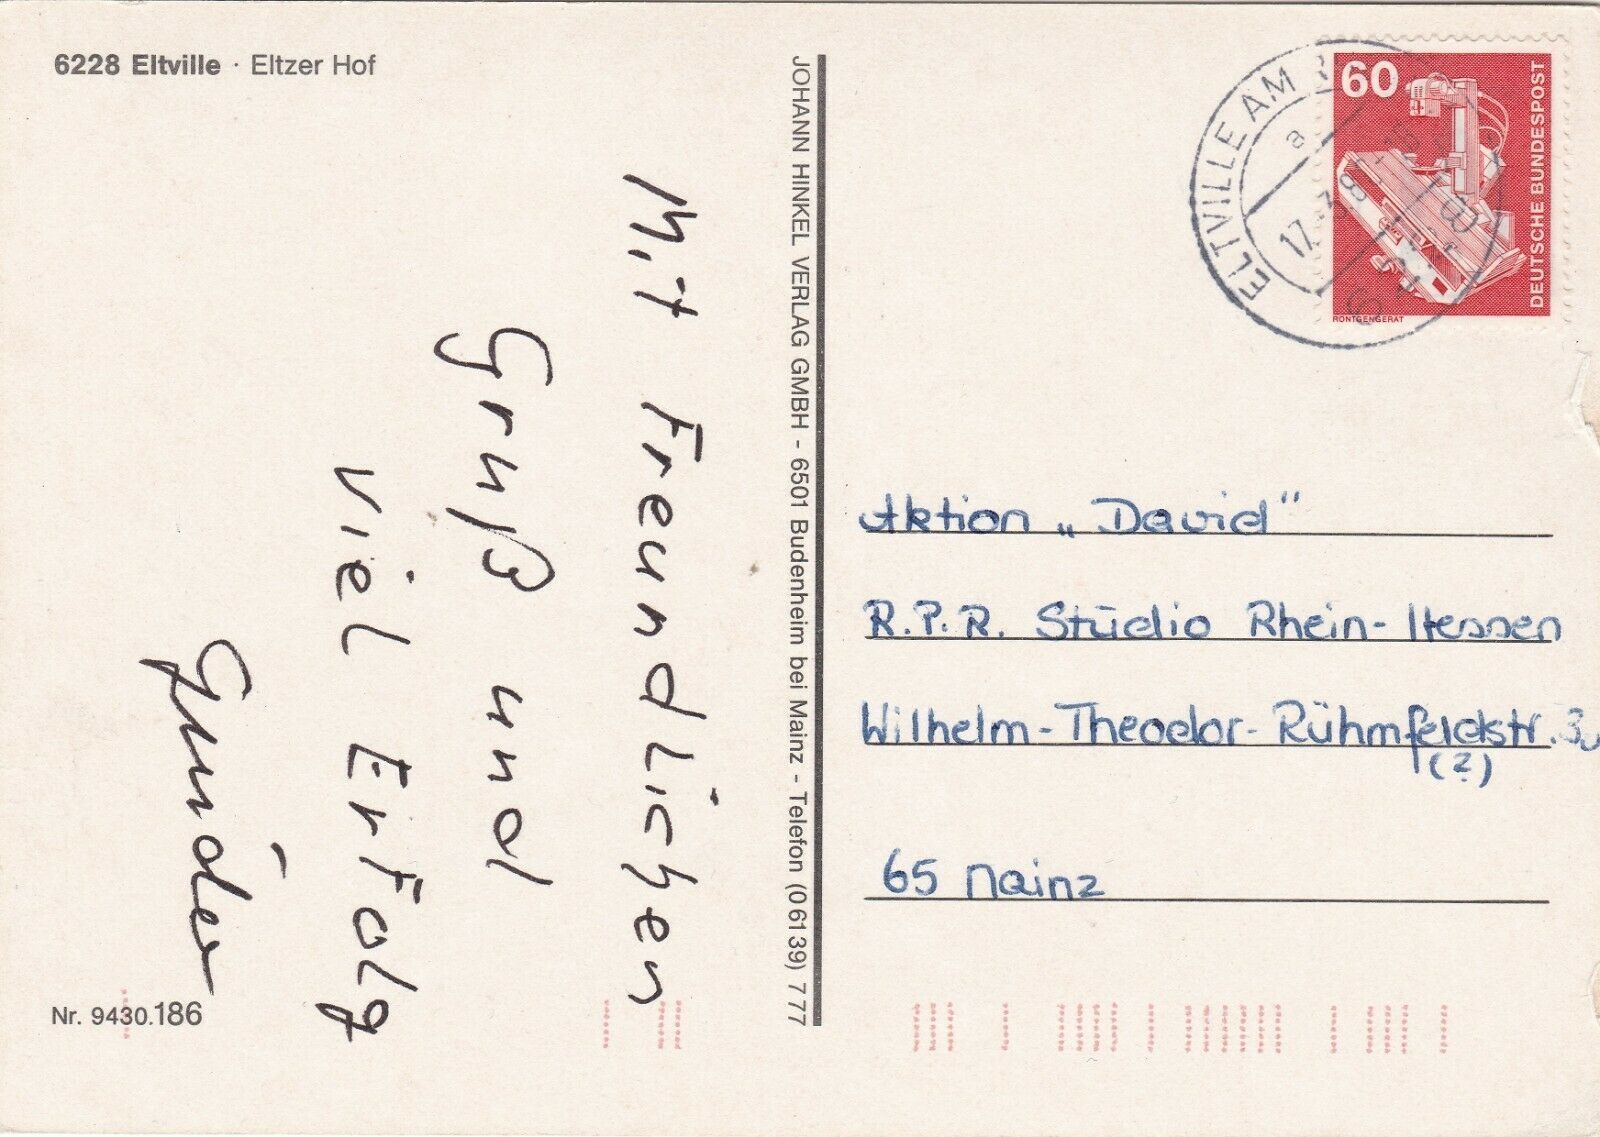 6228 Eltville · Eltzer Hof
Mit Freundlichen
Gruß und
viel Erfolg
Nr. 9430.186
JOHANN HINKEL VERLAG GMBH - 6501 Budenheim bei Mainz - Telefon (06139) 777
ELTVILLE AM
a
17.
60
DEUTSCHE BUNDESPOST
RÖNTGENGERÄT
Aktion „David"
R.P.R. Studio Rhein-Hessen
Wilhelm-Theodor-Rühmfeldstr.
(?)
65 Mainz